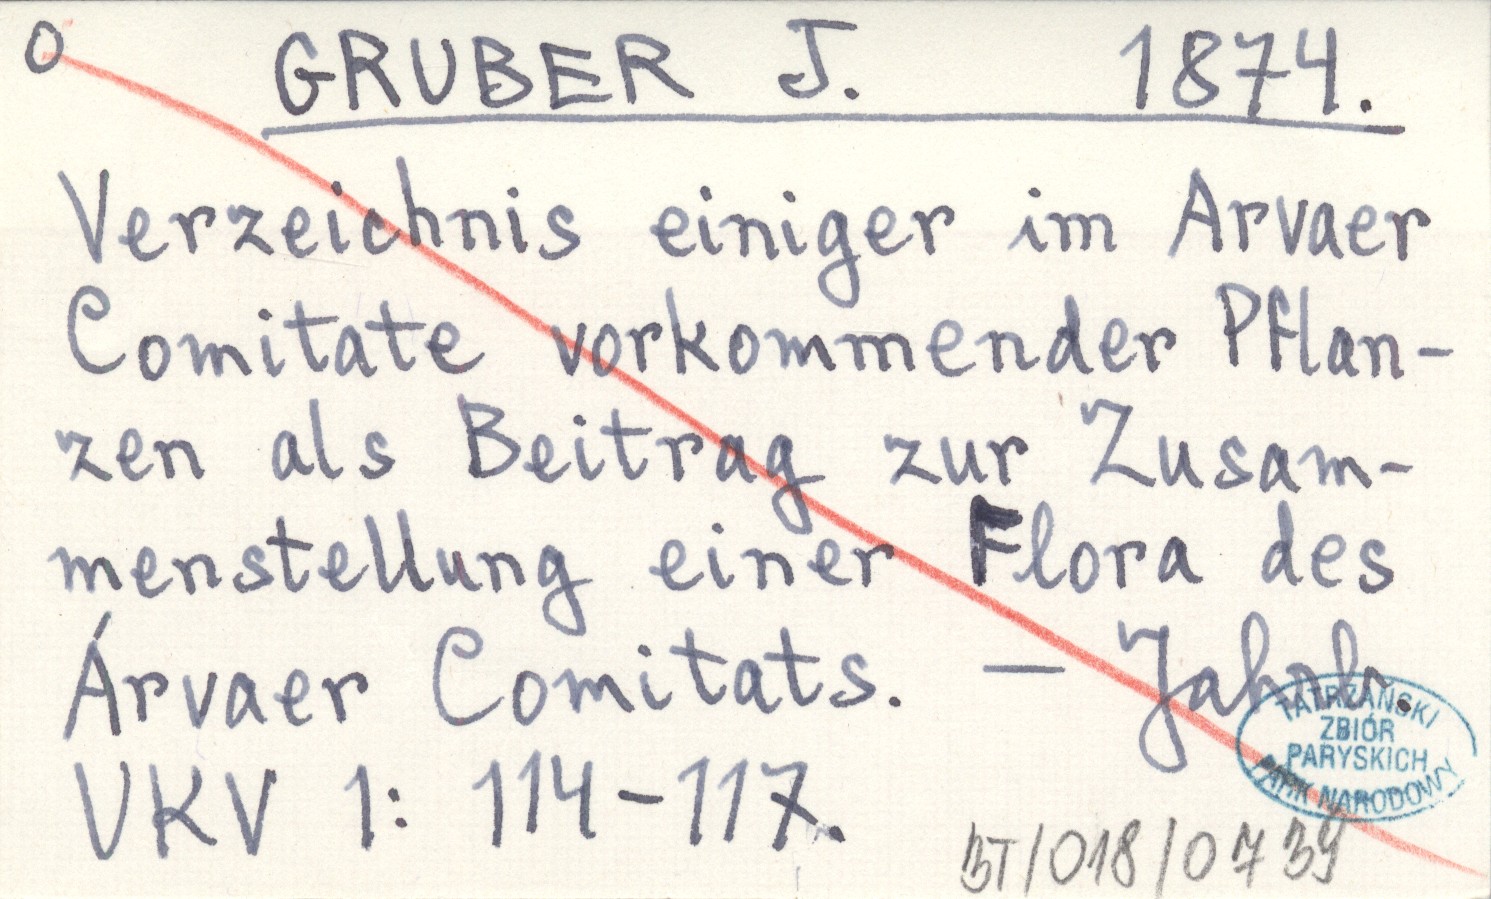 O GRUBER J. 1874.
Verzeichnis einiger im Arvaer
Comitate vorkommender Pflan-
zen als Beitrag zur Zusam-
menstellung einer Flora des
Árvaer Comitats. — Jahrb.
VKV 1: 114-117.
TATRZAŃSKI
ZBIÓR
PARYSKICH
PARK NARODOWY
BT/018/0739